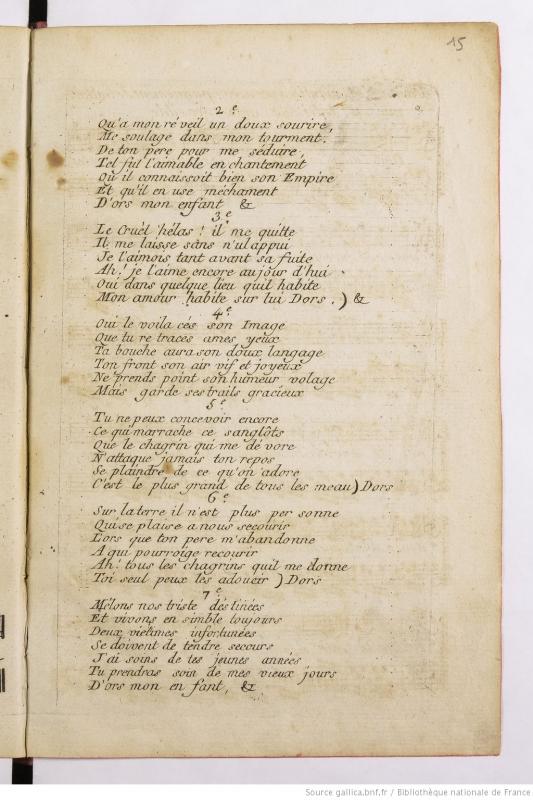 15
2e
Qu'a mon ré veil un doux sourire,
Me soulage dans mon tourment.
De ton pere pour me séduire,
Tel fut l'aimable en chantement
Qu il connaissoit bien son Empire
Et qu'il en use méchament
D'ors mon enfant &
3e
Le Cruèl hélas! il me quitte
Il me laisse sans n'ul appui
Je l'aimois tant avant sa fuite
Ah! je l'aime encore au jour d'hui
Oui dans quelque lieu quil habite
Mon amour habite sur lui Dors.) &
4e
Oui le voila cés son Image
Que tu re traces ames yeux
Ta bouche aura son doux langage
Ton front son air vif et joyeux
Ne prends point son humeur volage
Mais garde ses traits gracieux
5e
Tu ne peux concevoir encore
Ce qui marrache ce sanglôts
Que le chagrin qui me dé vore
N'attaque jamais ton repos
Se plaindre de ce qu'on adore
C'est le plus grand de tous les meau) Dors
6e
Sur la terre il n'est plus per sonne
Qui se plaise a nous secourir
Lors que ton pere m'abandonne
A qui pourroige recourir
Ah! tous les chagrins quil me donne
Toi seul peux les adoucir) Dors
7e
Mélons nos triste destinées
Et vivons en simble toujours
Deux victimes infortunées
Se doivent de tendre secours
J'ai soins de tes jeunes années
Tu prendras soin de mes vieux jours
D'ors mon en fant, &
Source gallica.bnf.fr / Bibliothèque nationale de France